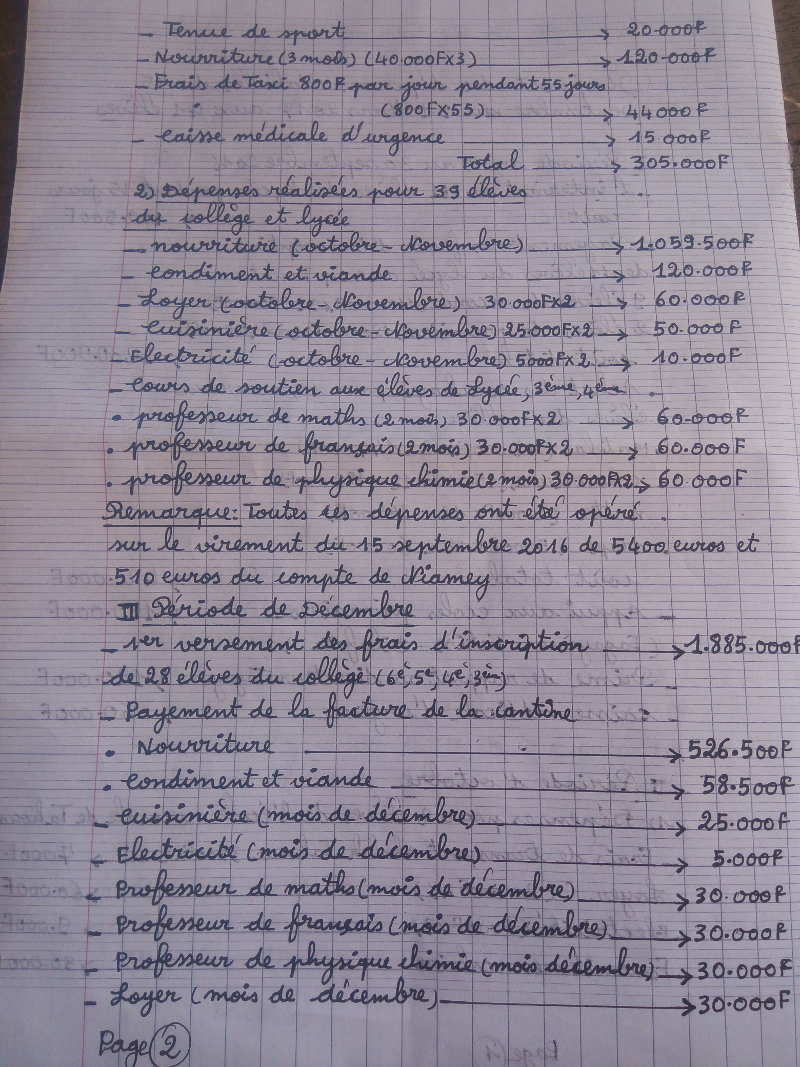 - Tenue de sport → 20.000F
- Nourriture (3 mois) (40.000F×3) → 120.000F
- Frais de Taxi 800F par jour pendant 55 jours
(800F×55) → 44000F
- Caisse médicale d'urgence → 15000F
Total → 305.000F
2) Dépenses réalisées pour 39 élèves
du collège et lycée
- nourriture (octobre-Novembre) → 1.059.500F
- condiment et viande → 120.000F
- Loyer (octobre-Novembre) 30.000F×2 → 60.000F
- Cuisinière (octobre-Novembre) 25.000F×2 → 50.000F
- Electricité (octobre-Novembre) 5000F×2 → 10.000F
- Cours de soutien aux élèves de Lycée, 3ème, 4ème
• professeur de maths (2 mois) 30.000F×2 → 60.000F
• professeur de français (2 mois) 30.000F×2 → 60.000F
• professeur de physique chimie (2 mois) 30.000F×2 → 60.000F
Remarque: Toutes ces dépenses ont été opéré
sur le virement du 15 septembre 2016 de 5400 euros et
510 euros du compte de Niamey
III Période de Décembre
- 1er versement des frais d'inscription → 1.885.000F
de 28 élèves du collège (6è, 5è, 4è, 3ème)
- Payement de la facture de la cantine
• Nourriture → 526.500F
• Condiment et viande → 58.500F
- Cuisinière (mois de décembre) → 25.000F
- Electricité (mois de décembre) → 5.000F
- Professeur de maths (mois de décembre) → 30.000F
- Professeur de français (mois de décembre) → 30.000F
- Professeur de physique chimie (mois décembre) → 30.000F
- Loyer (mois de décembre) → 30.000F
Page 2